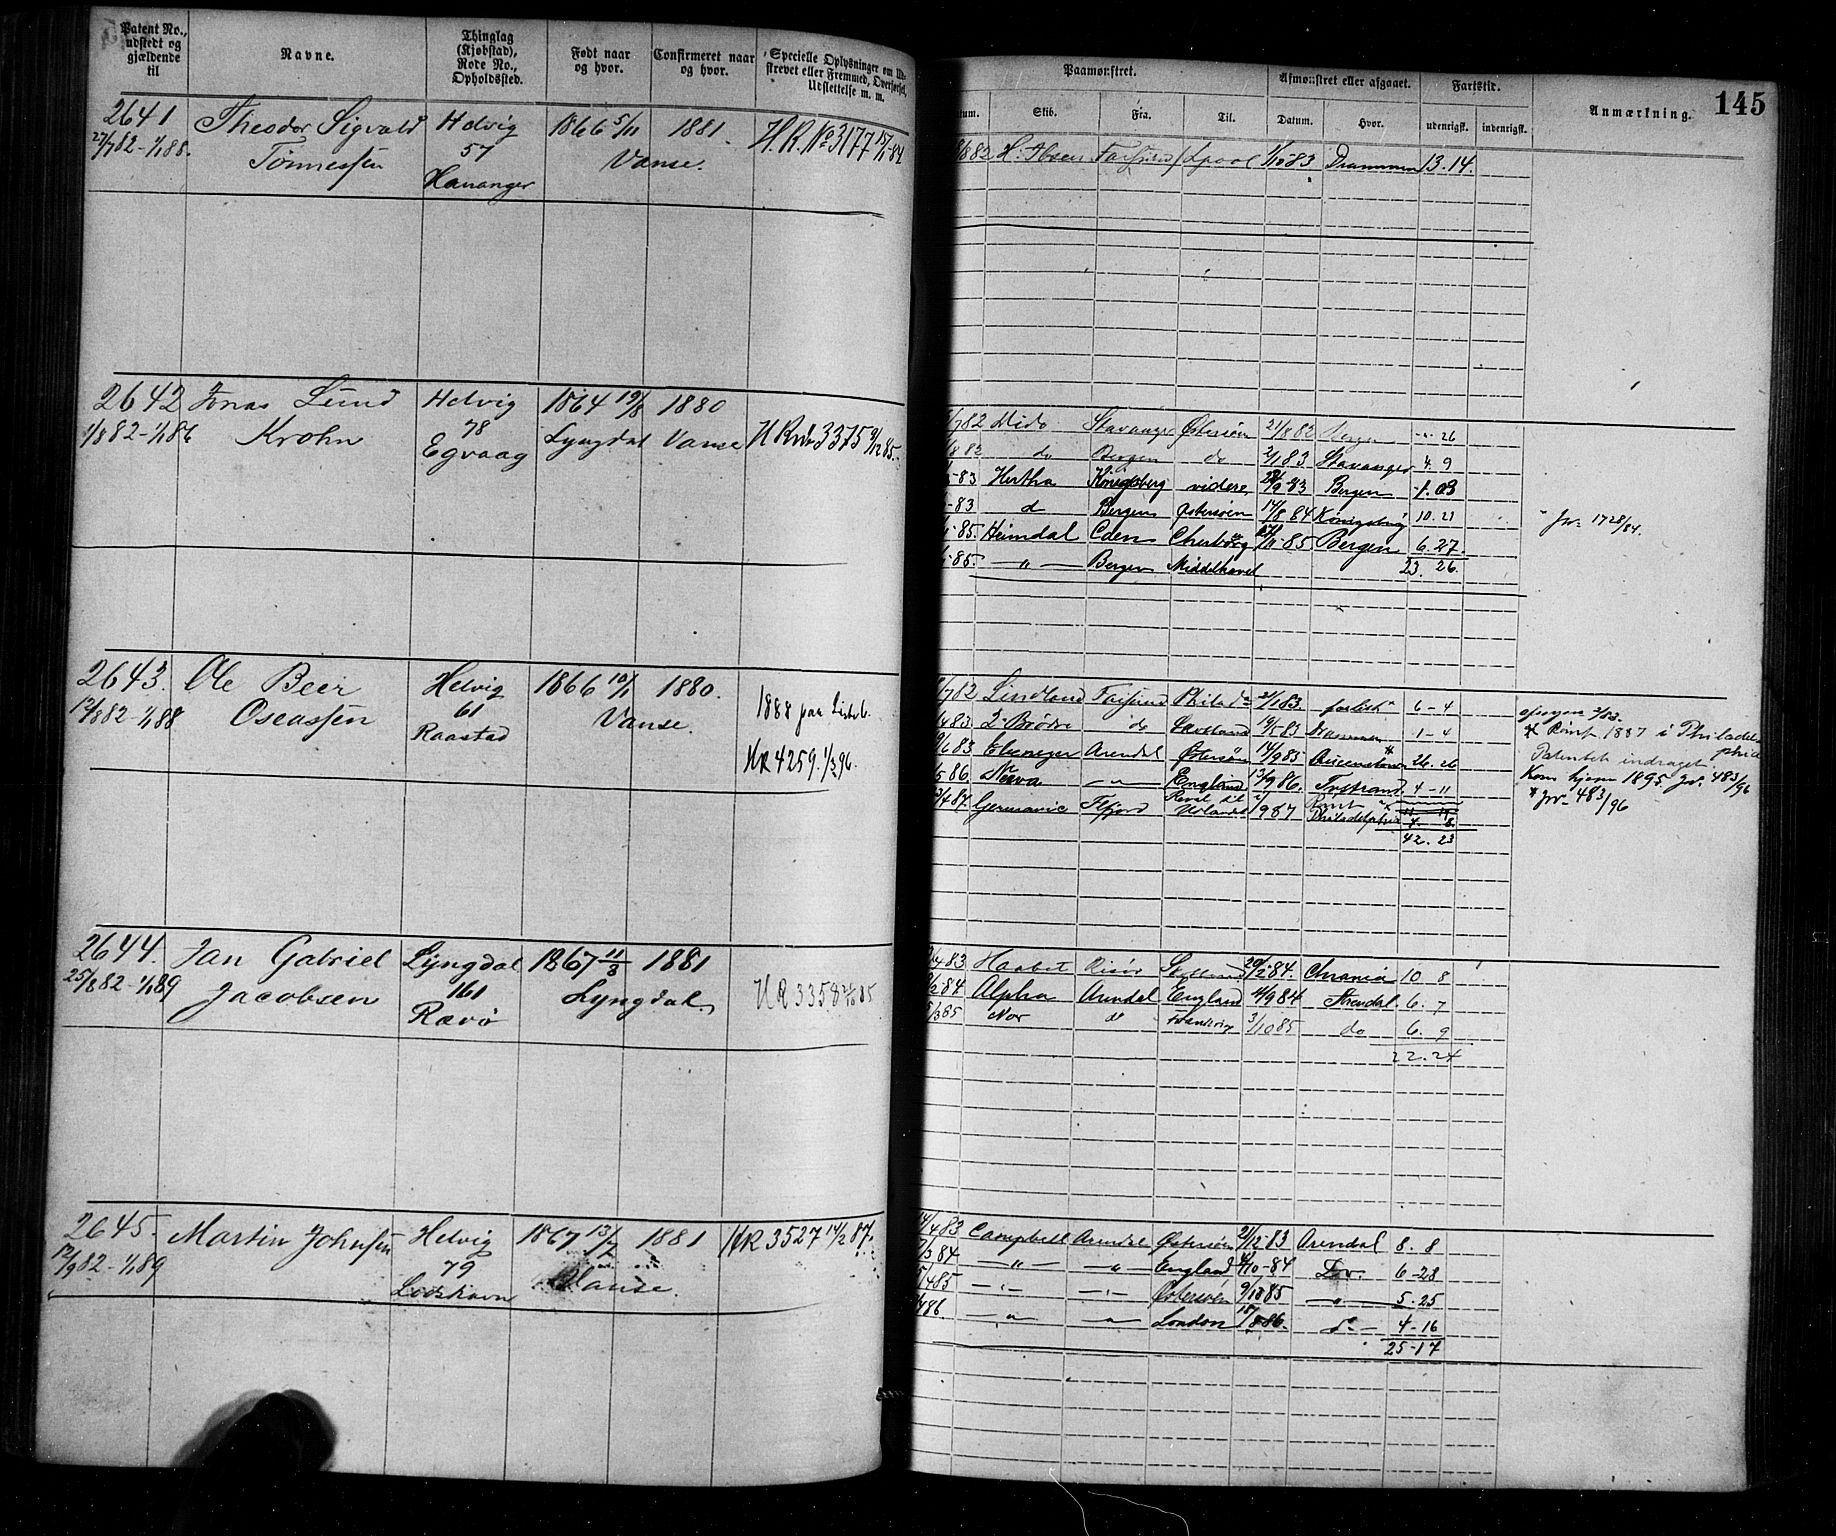 Patent No., udstedt og gjældende til | Navne. | Thinglag (Kjøbstad), Rode No., Opholdssted. | Født naar og hvor. | Confirmeret naar og hvor. | Specielle Oplysninger om Udstrevet eller Fremmed, Overførsel, Udslettelse m. m.
2641 Theodor Sigvald Helvig 1866 5/11 1881. H.R. No 3177 17/11-84
27/7 82-1/1 88. Tønnessen 57 Vanse.
Hananger
2642 Jonas Lund Helvig 1864 19/8 1880
1/8 82-1/1 86 Krohn 78 Lyngdal Vanse HR No 3375 9/12 85.
Egvaag
2643. Ole Beer Helvig 1866 10/1 1880. 1888 paa
12/8 82-1/1 88 Oseassen 61 Vanse.
Raastad HR 4259. 1/2 96.
2644. Jan Gabriel Lyngdal 1867 11/3 1881
25/8 82-1/1 89 Jacobsen 161 Lyngdal. HR 3358 85
Rævø
2645. Martin Johnsen Helvig 1867 13/2 1881 HR 3527 14/2 87.
12/9 82-1/1 89 79 Vanse.
Lodshavn
Paamønstret. Afmønstret eller afgaaet. Fartstid. Anmærkning. 145
Skib. Fra. Til. Datum. Hvor. udenrigsk. indenrigsk.
82 H. Ibsen Farsund Lpool 1/10 83 Drammen 13.14.
82 Mido Stavanger Østersøen 21/8 82 Bergen -"- 26
82 do Bergen do 2/1 83 Stavanger 4. 9
83 Hertha Königsberg videre 83 Bergen
83 d Bergen Østersøen 14/8 84 Königsberg 10.21
85. Heimdal Cherbörg 85 Bergen 6.27.
85. -"- Bergen Middelhavet 23.26.
Jr. 1728/84.
82 Lindland Farsund Philad 2/1 83. 6-4
83. 2 Brødre do 19/5 83 1-4
83 Ebenezer Arendal Østersø 14/9 85 26.26
86. Neva -"- England 13/9 86. Tvestrand 4-11
87. Germanic Flfjord 9 87 Rømt Philadelphia
42.23
* Rømt 1887 i Philadelphia
Patentet indraget
Kom hjem 1895 Jr. 483/96
* Jr. 483/96
83 Haabet Risör 84. Chrania 10. 8
84 Alpha Arendal England 84 Arendal. 6. 7
85 Nor do 3/10 85 do 6. 9
22.24
83 Campbell Arendal Østersøen 21/12 83 Arendal 8. 8
84 -"- -"- England 84 Do. 6-28
85 -"- -"- Østersøen 85 -"- 5.25
86. -"- -"- London 86. do 4-16
25-17